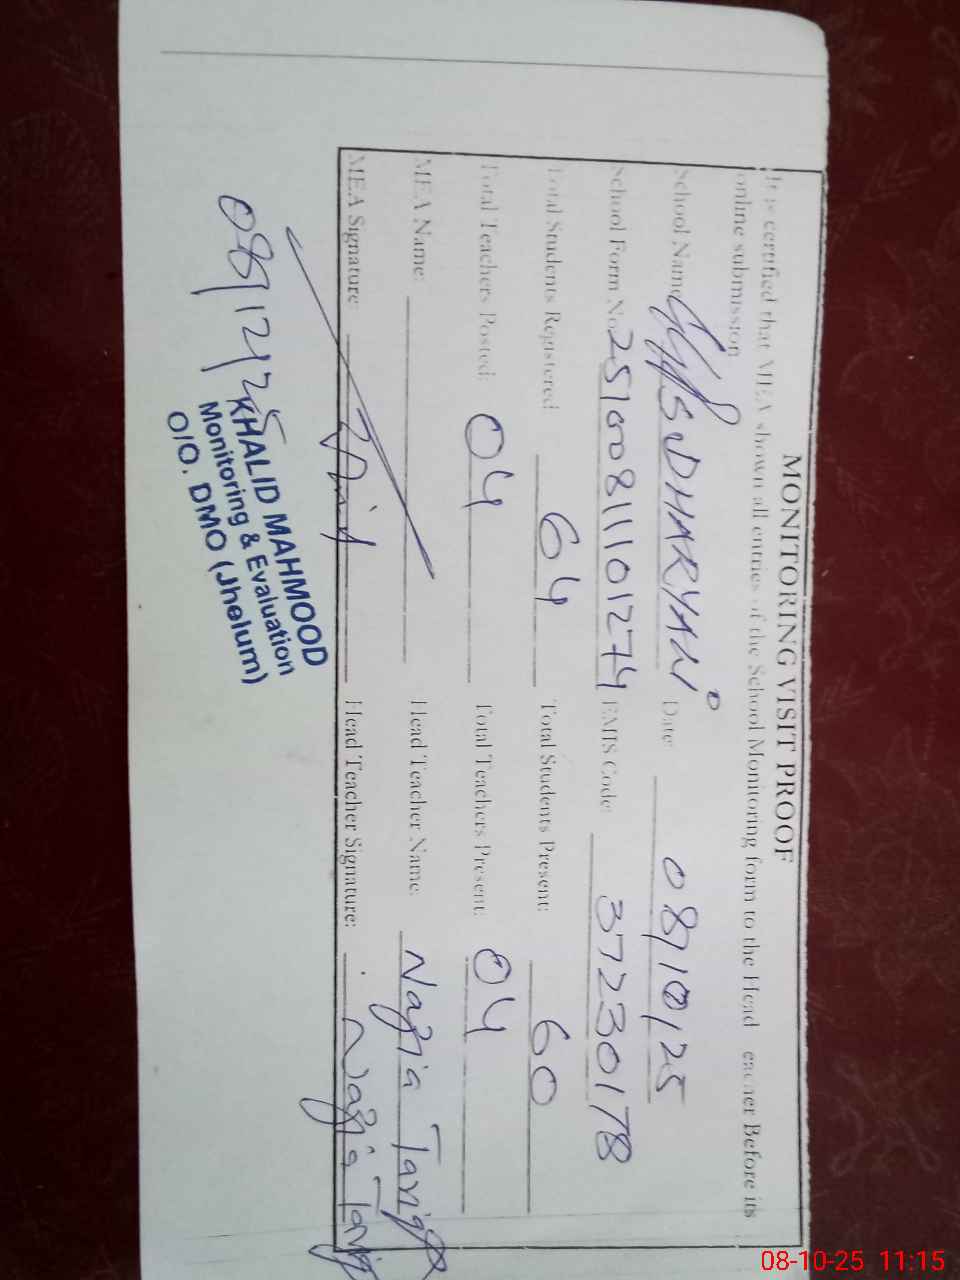 MONITORING VISIT PROOF
It is certified that MEA shown all entries of the School Monitoring form to the Head eacher Before its
online submission
School Name DHARYAN Date: 08/10/25
School Form No EMIS Code: 37230178
Total Students Registered 64 Total Students Present: 60
Total Teachers Posted: 04 Total Teachers Present: 04
MEA Name: Head Teacher Name: Nazia Tariq
MEA Signature: Head Teacher Signature: Nazia Tariq
KHALID MAHMOOD
Monitoring & Evaluation
O/O. DMO (Jhelum)
08-10-25 11:15